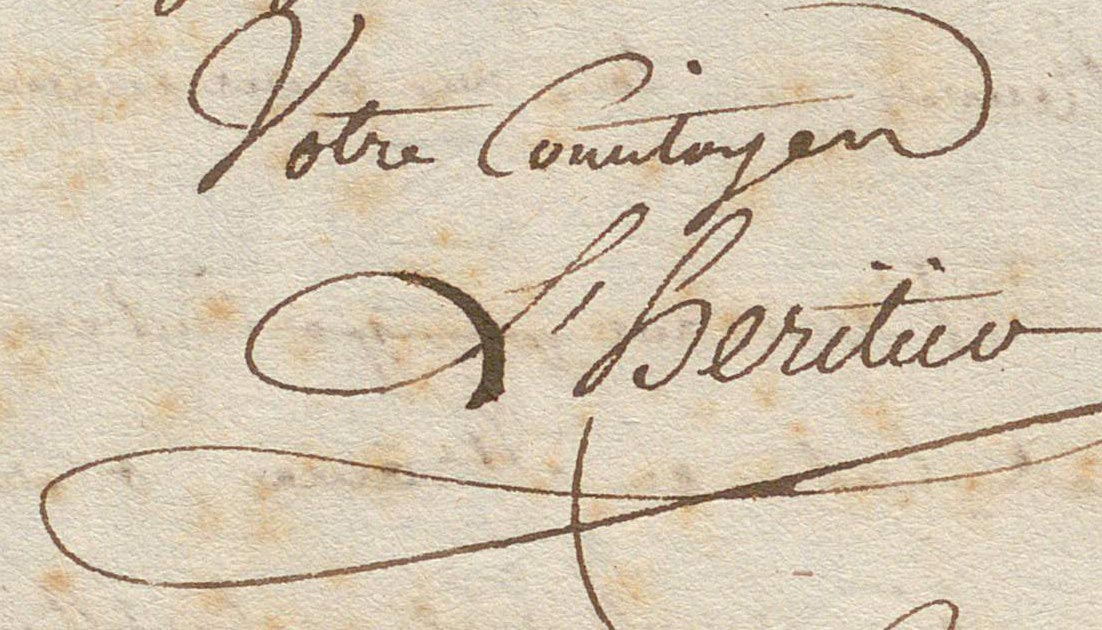 Votre Concitoyen
L'heritier